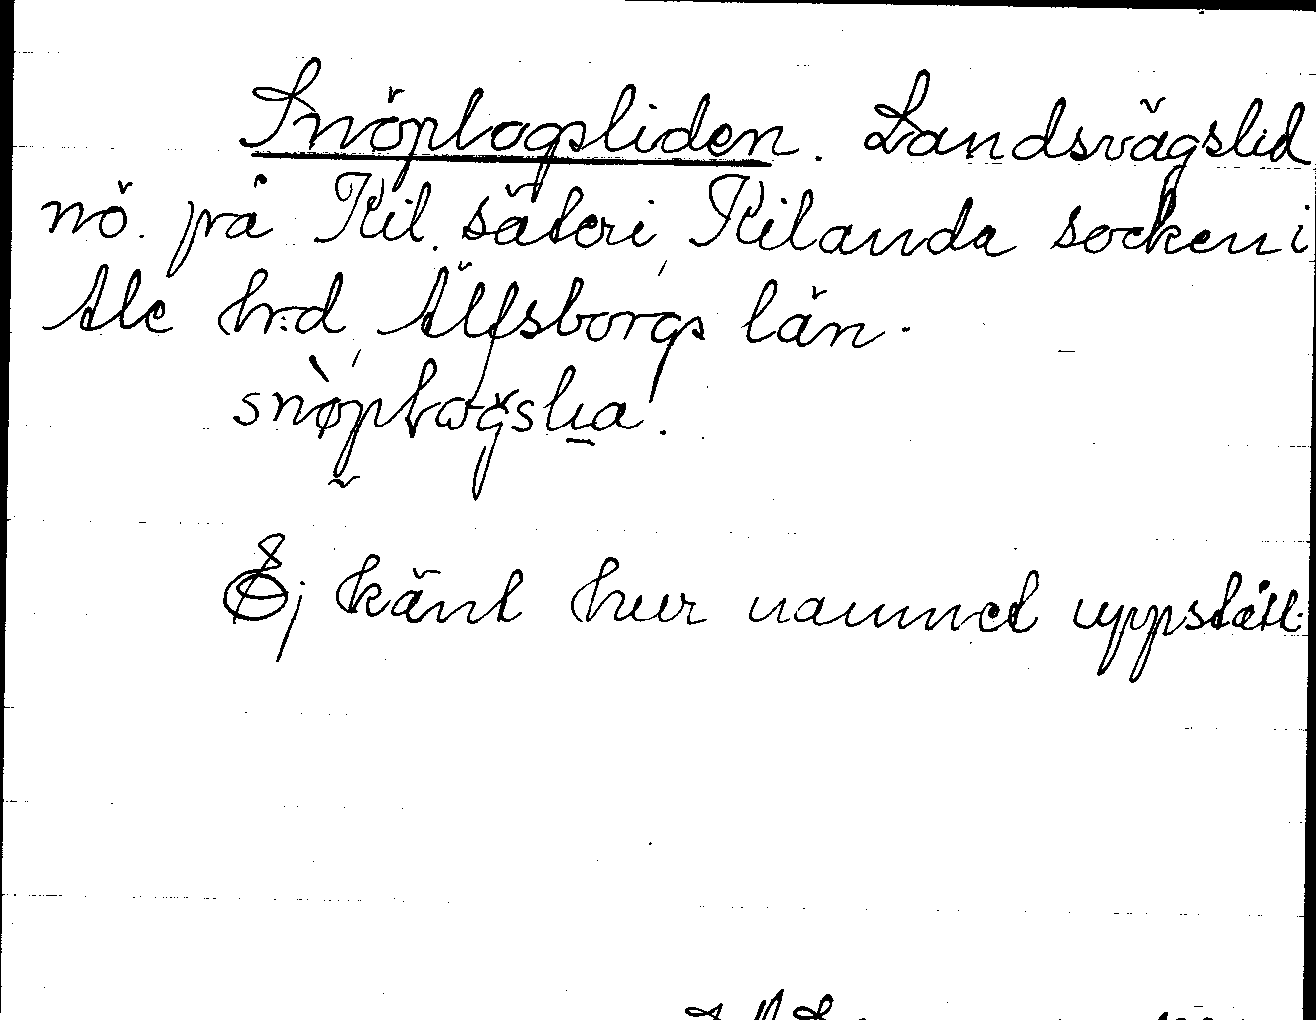 Snöplogsliden. Landsvägslid
nö. på Kil. säteri, Kilanda socken i
Ale hrd, Älfsborgs län.
snøplogslia.
Ej känt hur namnet uppstått.